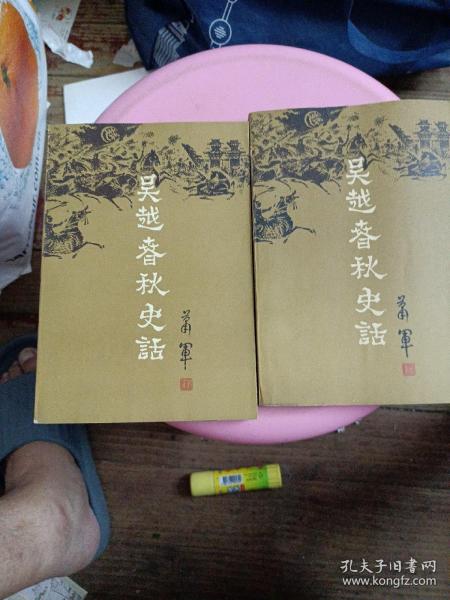 吴越春秋史话
萧军
吴越春秋史话
萧军
孔夫子旧书网
www.kongfz.com